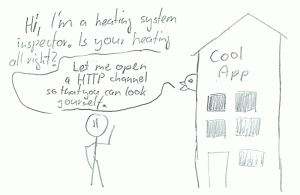 Hi, I'm a heating system
inspector. Is your heating
all right?
Let me open
a HTTP channel
so that you can look
yourself.
Cool
App